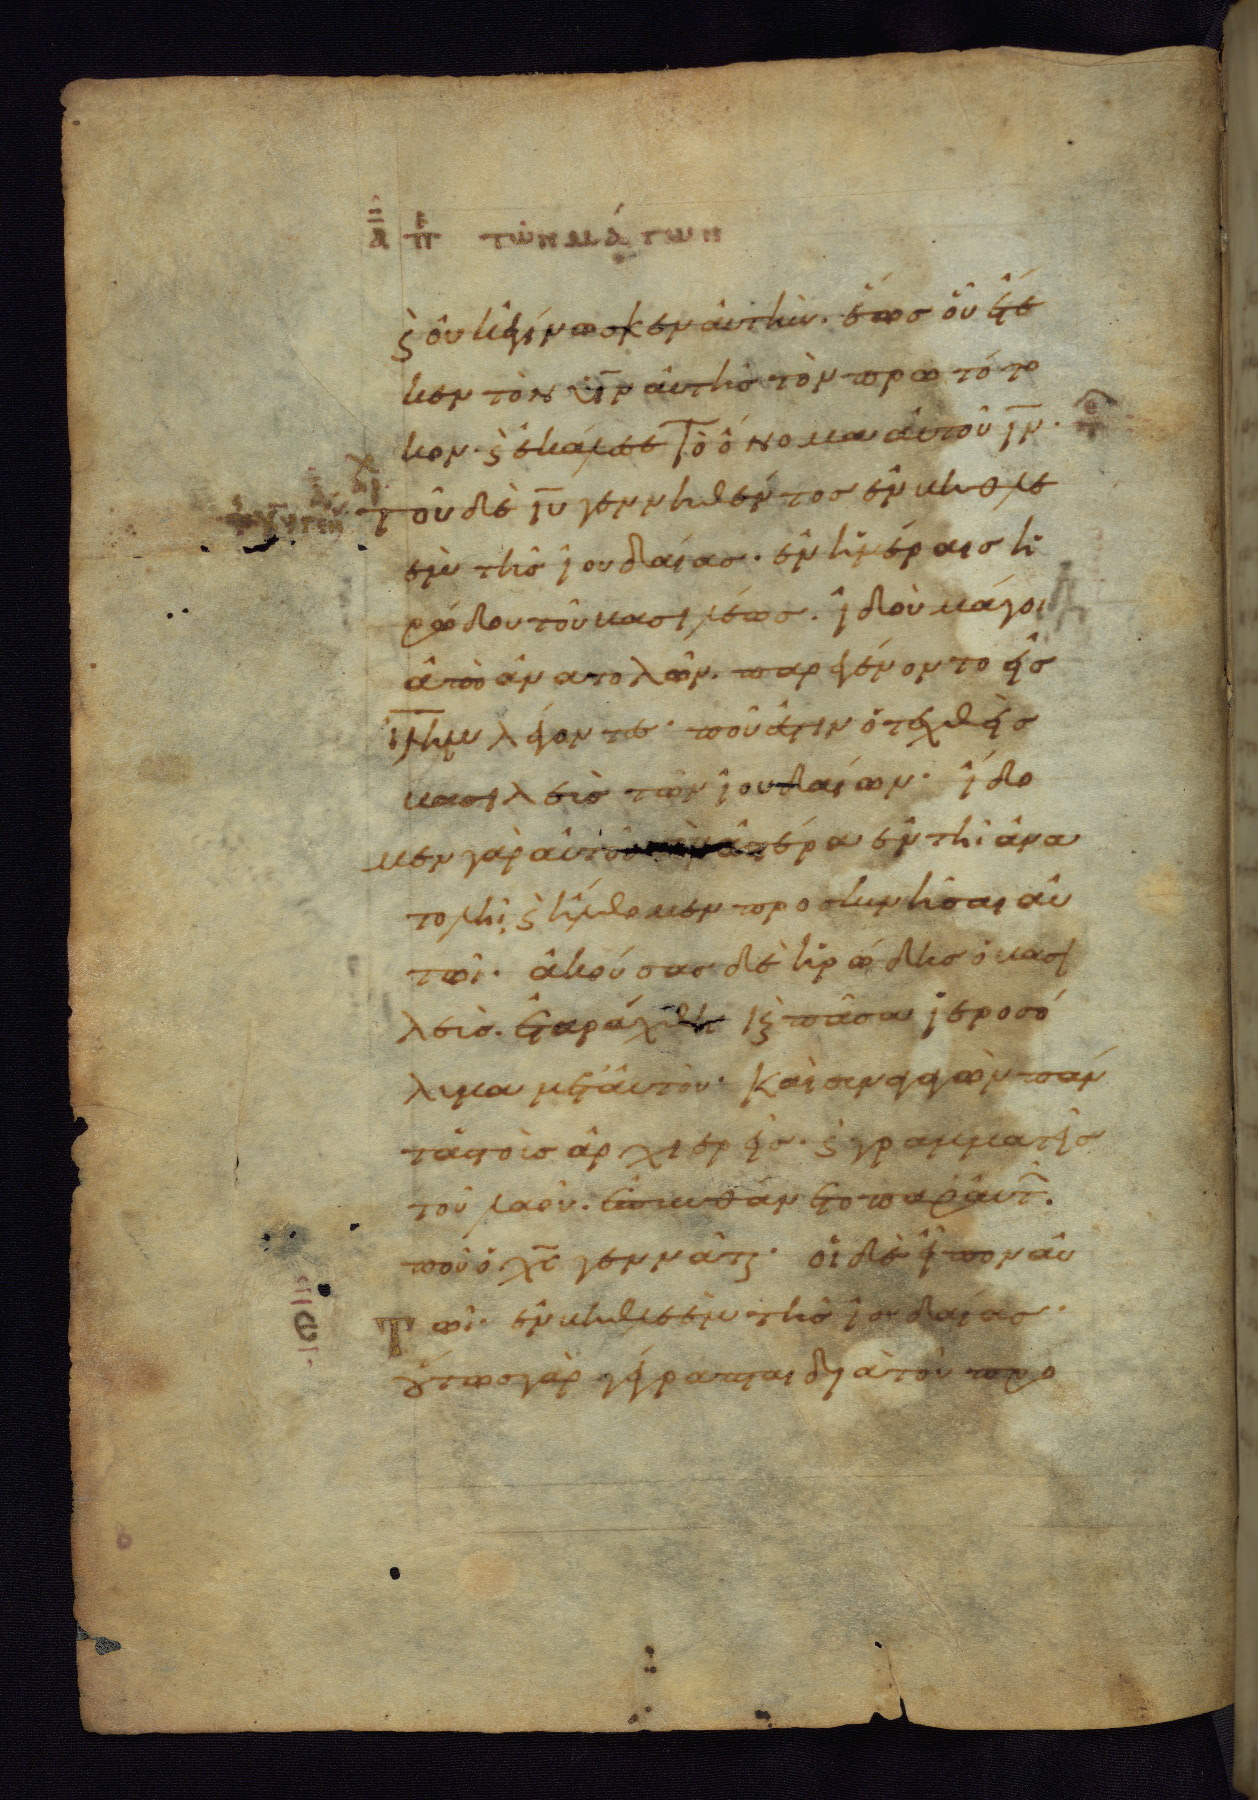 α π τῶν μάγων
ϛ οὐκ ἐγίνωσκεν αὐτὴν. ἕως οὗ ἔτε
κεν τὸν υἱν αὐτῆς τὸν πρωτότο
κον. ϛ ἐκάλεσε τὸ ὄνομα αὐτοῦ ιν.
Τοῦ δὲ ιυ γεννηθέντος ἐν βηθλε
εὲμ τῆς ἰουδαίας. ἐν ἡμέραις ἡ
ρώδου τοῦ βασιλέως. ἰδοὺ μάγοι
ἀπὸ ἀνατολῶν. παρεγένοντο εἰς
ιλημ λέγοντες. ποῦ ἐστιν ὁ τεχθεὶς
βασιλεὺς τῶν ἰουδαίων. εἴδο
μεν γὰρ αὐτοῦ τὸν ἀστέρα ἐν τῆι ἀνα
τολῆι ϛ ἤλθομεν προσκυνῆσαι αὐ
τῶι. ἀκούσας δὲ ἡρώδης ὁ βασι
λεὺς. ἐταράχθη ϛ πᾶσα ἱεροσό
λυμα μετ' αὐτοῦ. Καὶ συναγαγὼν πάν
τας τοὺς ἀρχιερεῖς. ϛ γραμματεῖς
τοῦ λαοῦ. ἐπυνθάνετο παρ' αὐτ.
ποῦ ὁ χς γεννᾶται. οἱ δὲ εἶπον αὐ
Τῶι. ἐν βηθλεεὲμ τῆς ἰουδαίας.
οὕτως γὰρ γέγραπται διὰ τοῦ προ